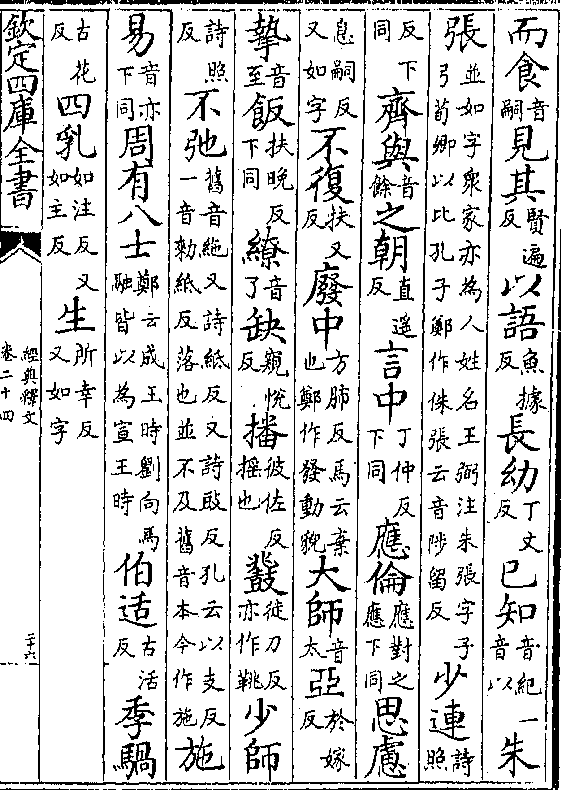 而食音嗣見其賢遍反以語魚據反長幼丁丈反已知音紀一音以朱
張並如字衆家亦為人姓名王弼注朱張字子弓荀卿以比孔子鄭作侏張云音陟留反少連詩照
反下同齊與音餘之朝直遥反言中丁仲反下同應倫應對之應下同思慮
息嗣反又如字不復扶又反廢中方肺反馬云棄也鄭作發動貌大師音太亞於嫁反
摯音至飯扶晚反下同繚音了缺窺悅反播彼佐反摇也鼗徒刀反亦作鞉少師
詩照反不弛舊音絁又詩紙反又詩豉反孔云以支反一音勑紙反落也並不及舊音本今作施施
易音亦下同周有八士鄭云成王時劉向馬融皆以為宣王時伯适古活反季騧
古花反四乳如注反又如主反生所幸反又如字
欽定四庫全書
經典釋文
卷二十四
二十六